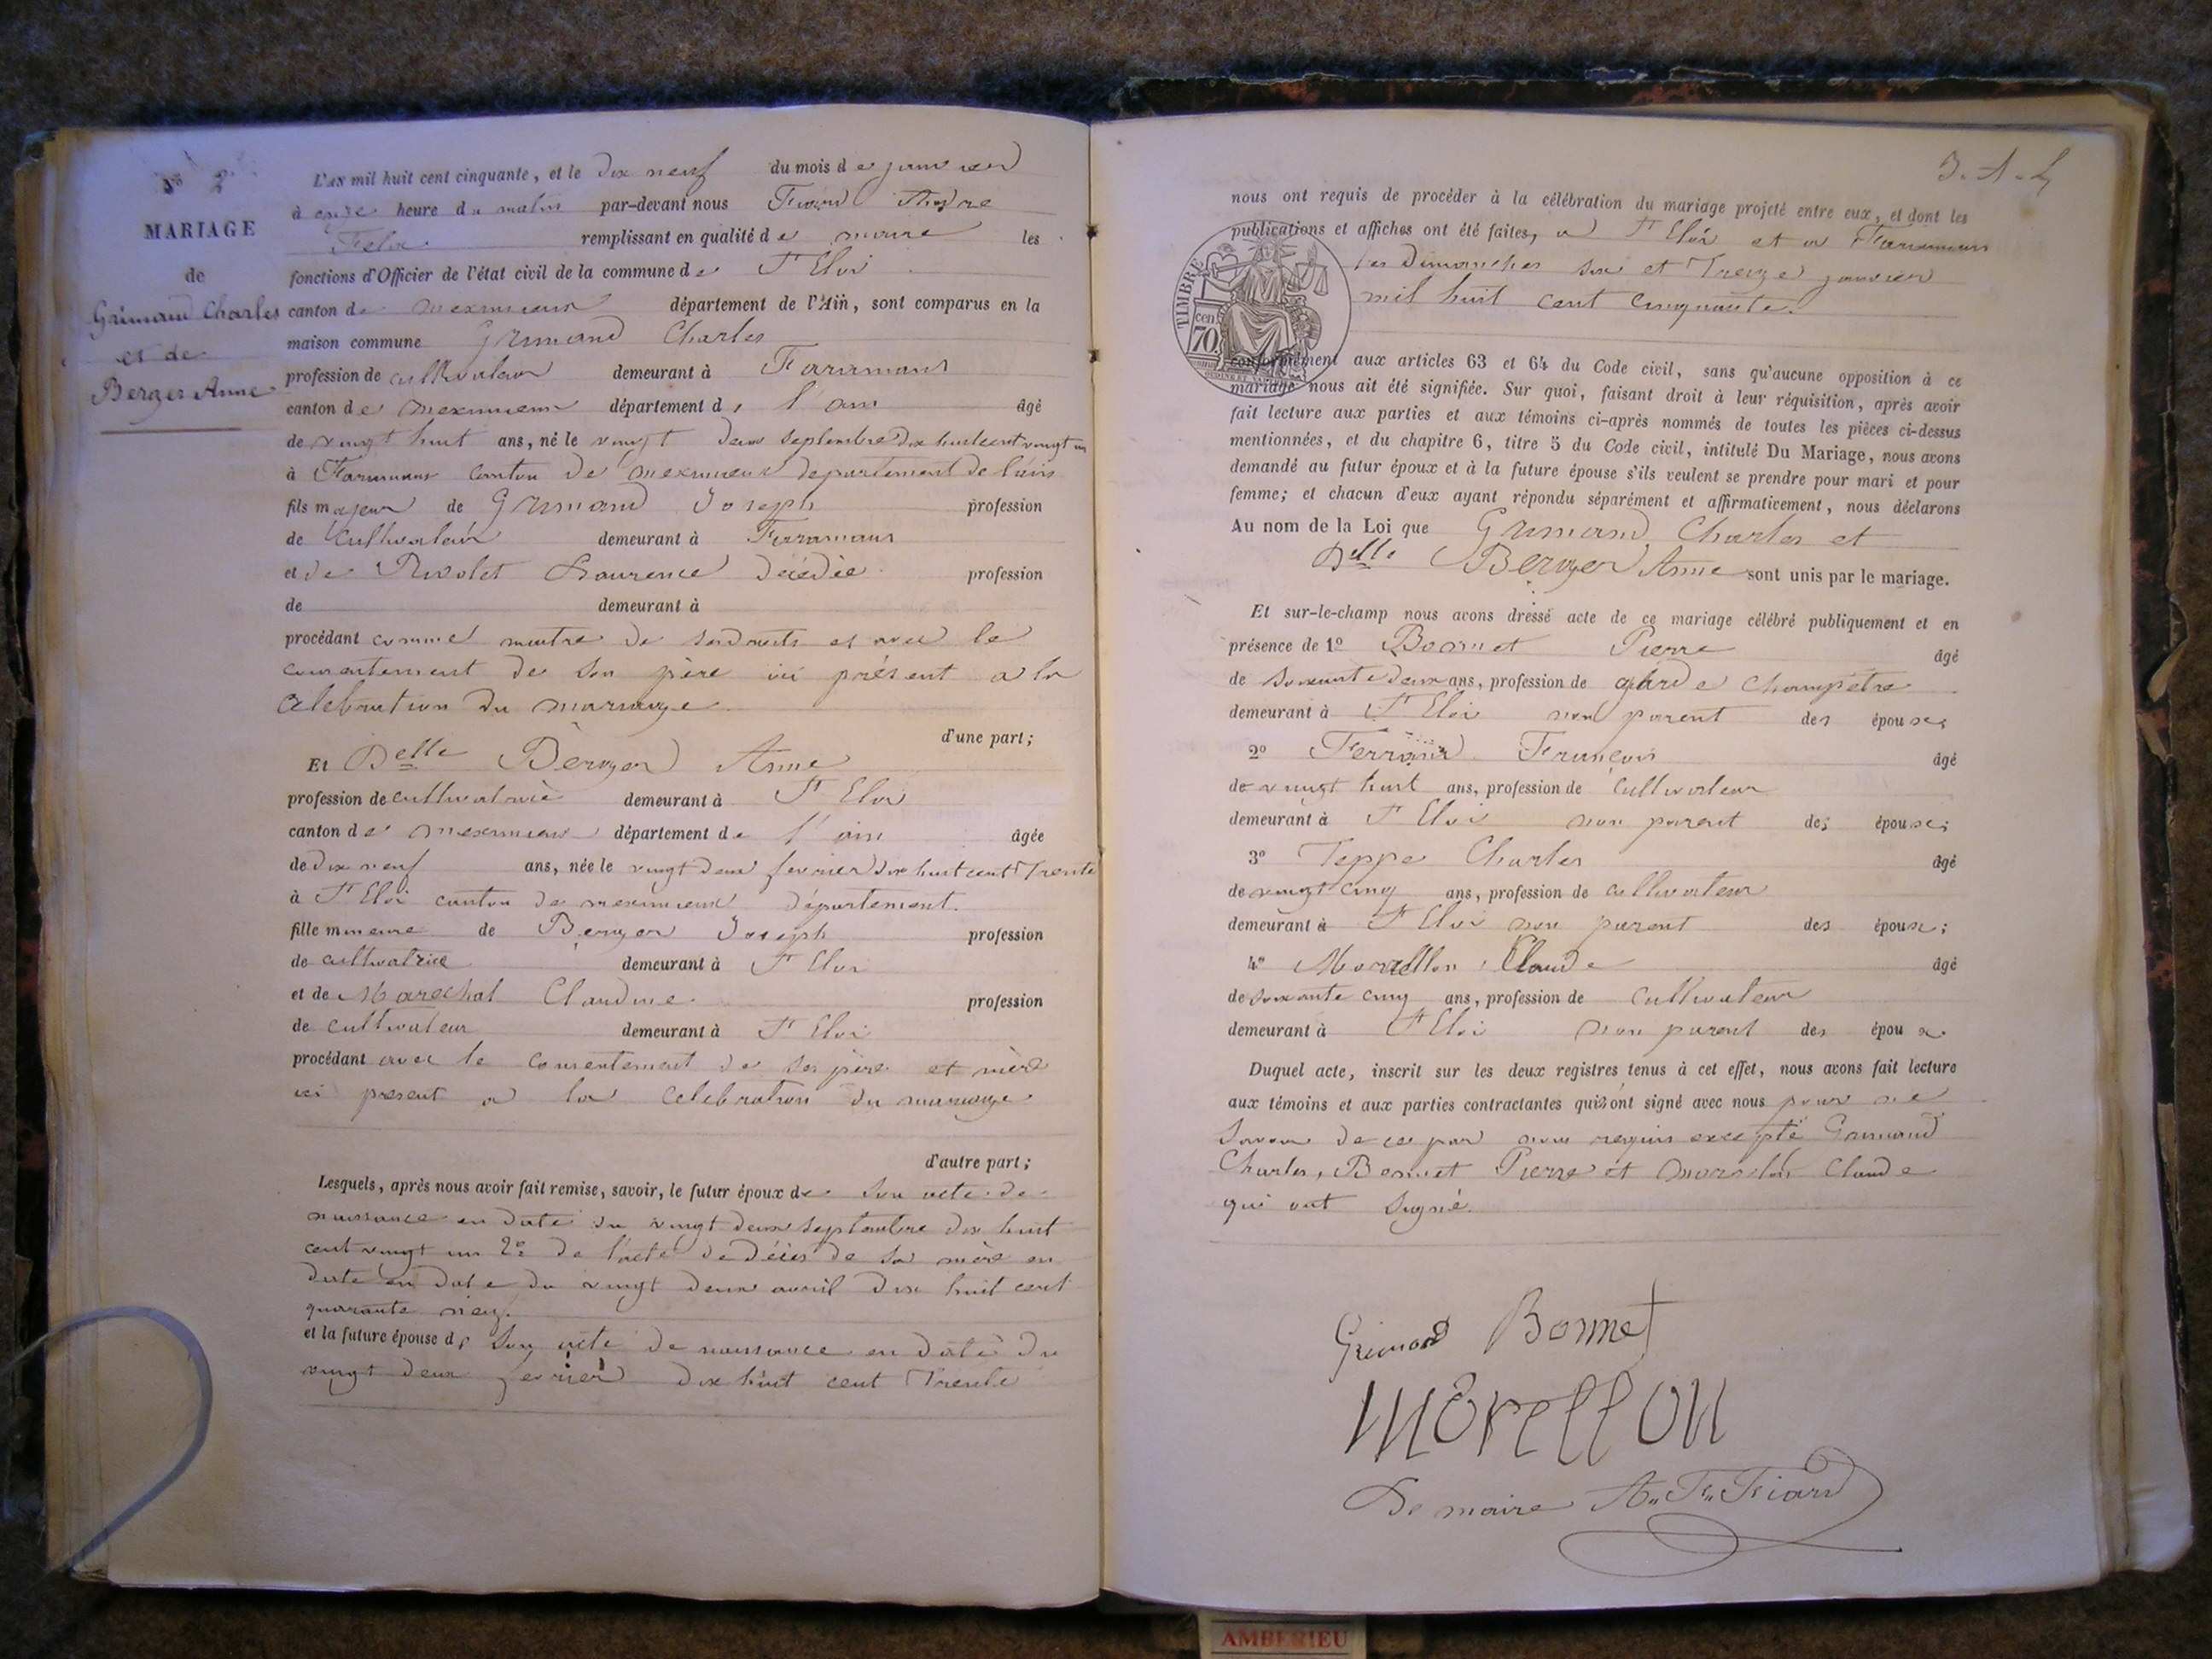 N° 2
MARIAGE
de
Grimand Charles
et de
Berger Anne
L'AN mil huit cent cinquante, et le dix neuf du mois de janvier
à onze heure du matin par-devant nous Fiard Andre
Felix remplissant en qualité de maire les
fonctions d'Officier de l'état civil de la commune de St Eloi
canton de meximieux département de l'Ain, sont comparus en la
maison commune Grimand Charles
profession de cultivateur demeurant à Faramans
canton de meximieux département de l'ain âgé
de vingt huit ans, né le vingt deux septembre dix huit cent vingt un
à Faramans canton de meximieux departement de l'ain
fils majeur de Grimand Joseph profession
de cultivateur demeurant à Farramans
et de Rivolet Laurence décédée profession
de demeurant à
procédant comme maitre de ses droits et avec le
consentement de son père ici présent a la
célebration du mariage
d'une part;
Et Delle Berger Anne
profession de cultivatrice demeurant à St Eloi
canton de meximieux département de l'ain âgée
de dix neuf ans, née le vingt deux fevrier dix huit cent Trente
à St Eloi canton de meximieux département
fille mineure de Berger Joseph profession
de cultivatrice demeurant à St Eloi
et de Marechal Claudine profession
de cultivateur demeurant à St Eloi
procédant avec le consentement de ses père et mère
ici présent a la celebration du mariage
d'autre part;
Lesquels, après nous avoir fait remise, savoir, le futur époux de son acte de
naissance en date du vingt deux septembre dix huit
cent vingt un 2° de l'acte de décès de sa mère en
date en date du vingt deux avril dix huit cent
quarante neuf.
et la future épouse de son acte de naissance en date du
vingt deux fevrier dix huit cent Trente
nous ont requis de procéder à la célébration du mariage projeté entre eux, et dont les
publications et affiches ont été faites, a St Eloi et a Faramans
les Dimanches six et Treize janvier
mil huit cent cinquante.
TIMBRE
cen
70
conformément aux articles 63 et 64 du Code civil, sans qu'aucune opposition à ce
mariage nous ait été signifiée. Sur quoi, faisant droit à leur réquisition, après avoir
fait lecture aux parties et aux témoins ci-après nommés de toutes les pièces ci-dessus
mentionnées, et du chapitre 6, titre 5 du Code civil, intitulé Du Mariage, nous avons
demandé au futur époux et à la future épouse s'ils veulent se prendre pour mari et pour
femme; et chacun d'eux ayant répondu séparément et affirmativement, nous déclarons
Au nom de la Loi que Grimand Charles et
Delle Berger Anne sont unis par le mariage.
Et sur-le-champ nous avons dressé acte de ce mariage célébré publiquement et en
présence de 1° Bonnet Pierre âgé
de soixante deux ans, profession de garde champetre
demeurant à St Eloi non parent des épouxs
2° Ferrand François âgé
de vingt huit ans, profession de cultivateur
demeurant à St Eloi non parent des époux;
3° Teppe Charles âgé
de vingt cinq ans, profession de cultivateur
demeurant à St Eloi non parent des époux;
4° Morellon Claude âgé
de soixante cinq ans, profession de cultivateur
demeurant à St Eloi non parent des époux
Duquel acte, inscrit sur les deux registres tenus à cet effet, nous avons fait lecture
aux témoins et aux parties contractantes qui ont signé avec nous pour ne
savoir de ce par nous requis excepté Grimand
Charles, Bonnet Pierre et Morellon Claude
qui ont signé.
Grimand Bonnet
morellon
Le maire A. F. Fiard
AMBERIEU